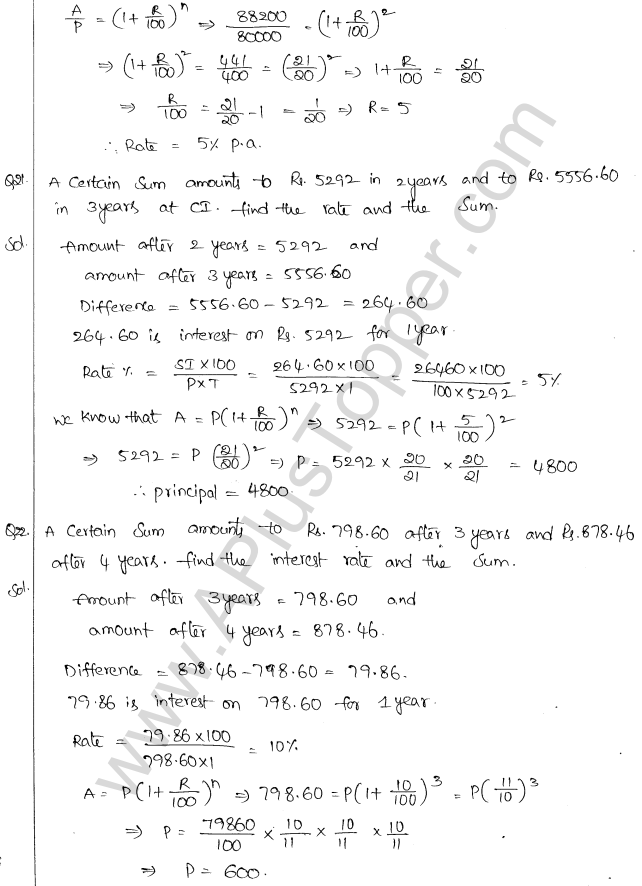 A/P = (1 + R/100)^n ⇒ 88200/80000 = (1 + R/100)^2
⇒ (1 + R/100)^2 = 441/400 = (21/20)^2 ⇒ 1 + R/100 = 21/20
⇒ R/100 = 21/20 - 1 = 1/20 ⇒ R = 5
∴ Rate = 5% p.a.
Q21. A Certain Sum amounts to Rs. 5292 in 2 years and to Rs. 5556.60
in 3 years at CI. find the rate and the Sum.
Sol. Amount after 2 years = 5292 and
amount after 3 years = 5556.60
Difference = 5556.60 - 5292 = 264.60
264.60 is interest on Rs. 5292 for 1 year.
Rate % = SI × 100/P×T = 264.60 × 100/5292 × 1 = 26460 × 100/100 × 5292 = 5%
We Know that A = P(1 + R/100)^n ⇒ 5292 = P(1 + 5/100)^2
⇒ 5292 = P (21/20)^2 ⇒ P = 5292 × 20/21 × 20/21 = 4800
∴ principal = 4800.
Q22. A Certain Sum amounts to Rs. 798.60 after 3 years and Rs. 878.46
after 4 years. find the interest rate and the Sum.
Sol. Amount after 3 years = 798.60 and
amount after 4 years = 878.46.
Difference = 878.46 - 798.60 = 79.86.
79.86 is interest on 798.60 for 1 year.
Rate = 79.86 × 100/798.60 × 1 = 10%
A = P(1 + R/100)^n ⇒ 798.60 = P(1 + 10/100)^3 = P(11/10)^3
⇒ P = 79860/100 × 10/11 × 10/11 × 10/11
⇒ P = 600.
www.APlusTopper.com